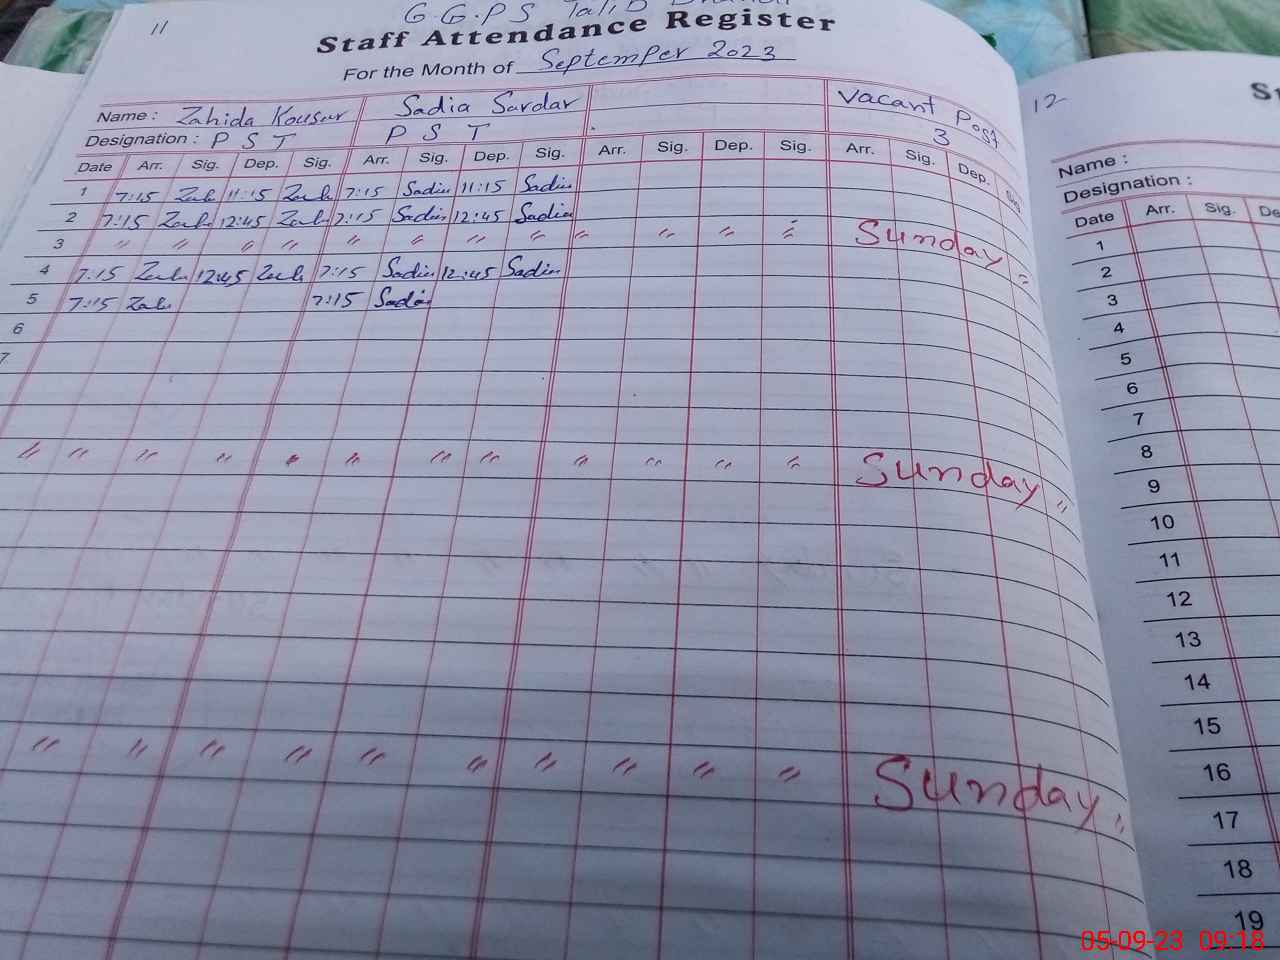 11
G.G.P.S Talib
Staff Attendance Register
For the Month of September 2023
Name : Zahida Kousur Sadia Sardar Vacant Post
Designation : P S T P S T 3
Date Arr. Sig. Dep. Sig. Arr. Sig. Dep. Sig. Arr. Sig. Dep. Sig. Arr. Sig. Dep. Sig.
1 7:15 Zah 11:15 Zah 7:15 Sadia 11:15 Sadia
2 7:15 Zah 12:45 Zah 7:15 Sadia 12:45 Sadia
3 " " " " " " " " " " " " Sunday "
4 7:15 Zah 12:45 Zah 7:15 Sadia 12:45 Sadia
5 7:15 Zah 7:15 Sadia
6
7
" " " " " " " " " " " " Sunday "
" " " " " " " " " " Sunday "
12
Name :
Designation :
Date Arr. Sig.
1
2
3
4
5
6
7
8
9
10
11
12
13
14
15
16
17
18
19
05-09-23 09:18